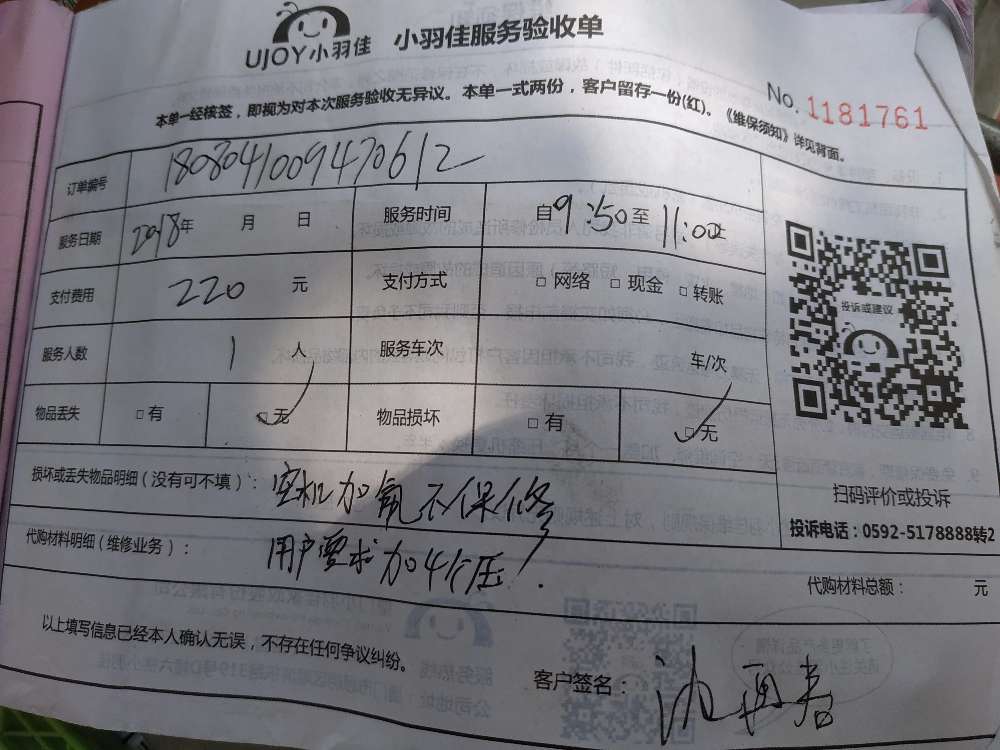 UJOY小羽佳 小羽佳服务验收单
No. 1181761
本单一经核签，即视为对本次服务验收无异议。本单一式两份，客户留存一份(红)。《维保须知》详见背面。
订单编号 1808041009470612
服务日期 2018年 月 日 服务时间 自9:50至11:00止
支付费用 220 元 支付方式 □ 网络 □ 现金 □ 转账
服务人数 1 人 服务车次 车/次
物品丢失 □ 有 □ 无 物品损坏 □ 有 □ 无
投诉或建议
扫码评价或投诉
投诉电话：0592-5178888转2
损坏或丢失物品明细（没有可不填）： 空机加氟不保修
代购材料明细（维修业务）： 用户要求加4个压！
代购材料总额： 元
以上填写信息已经本人确认无误，不存在任何争议纠纷。
客户签名： 沈再春